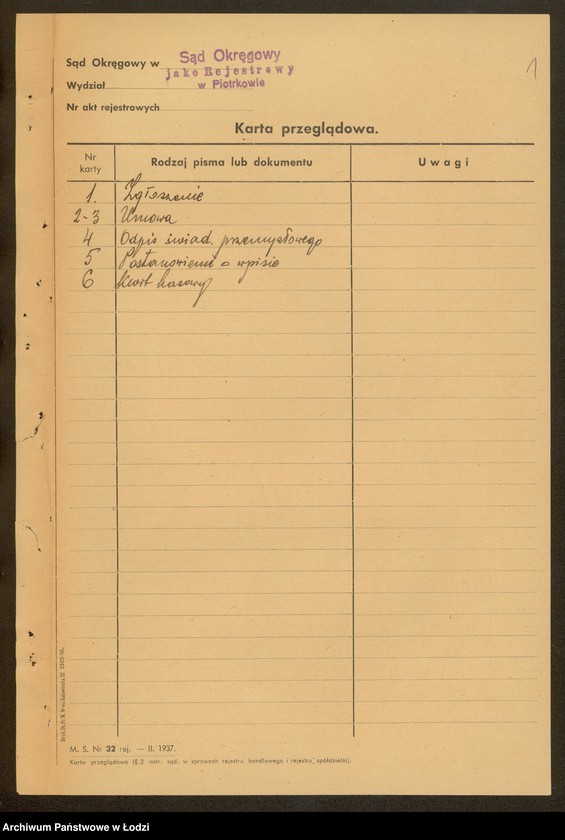 1
Sąd Okręgowy w
Sąd Okręgowy
jako Rejestrowy
w Piotrkowie
Wydział
Nr akt rejestrowych
Karta przeglądowa.
Nr karty Rodzaj pisma lub dokumentu Uwagi
1. Zgłoszenie
2-3 Umowa
4 Odpis świad. przemysłowego
5 Postanowienie o wpisie
6 Kwit kasowy
M. S. Nr 32 rej. — II. 1937.
Karta przeglądowa (§ 2 instr. sąd. w sprawach rejestru handlowego i rejestru spółdzielni).
Archiwum Państwowe w Łodzi